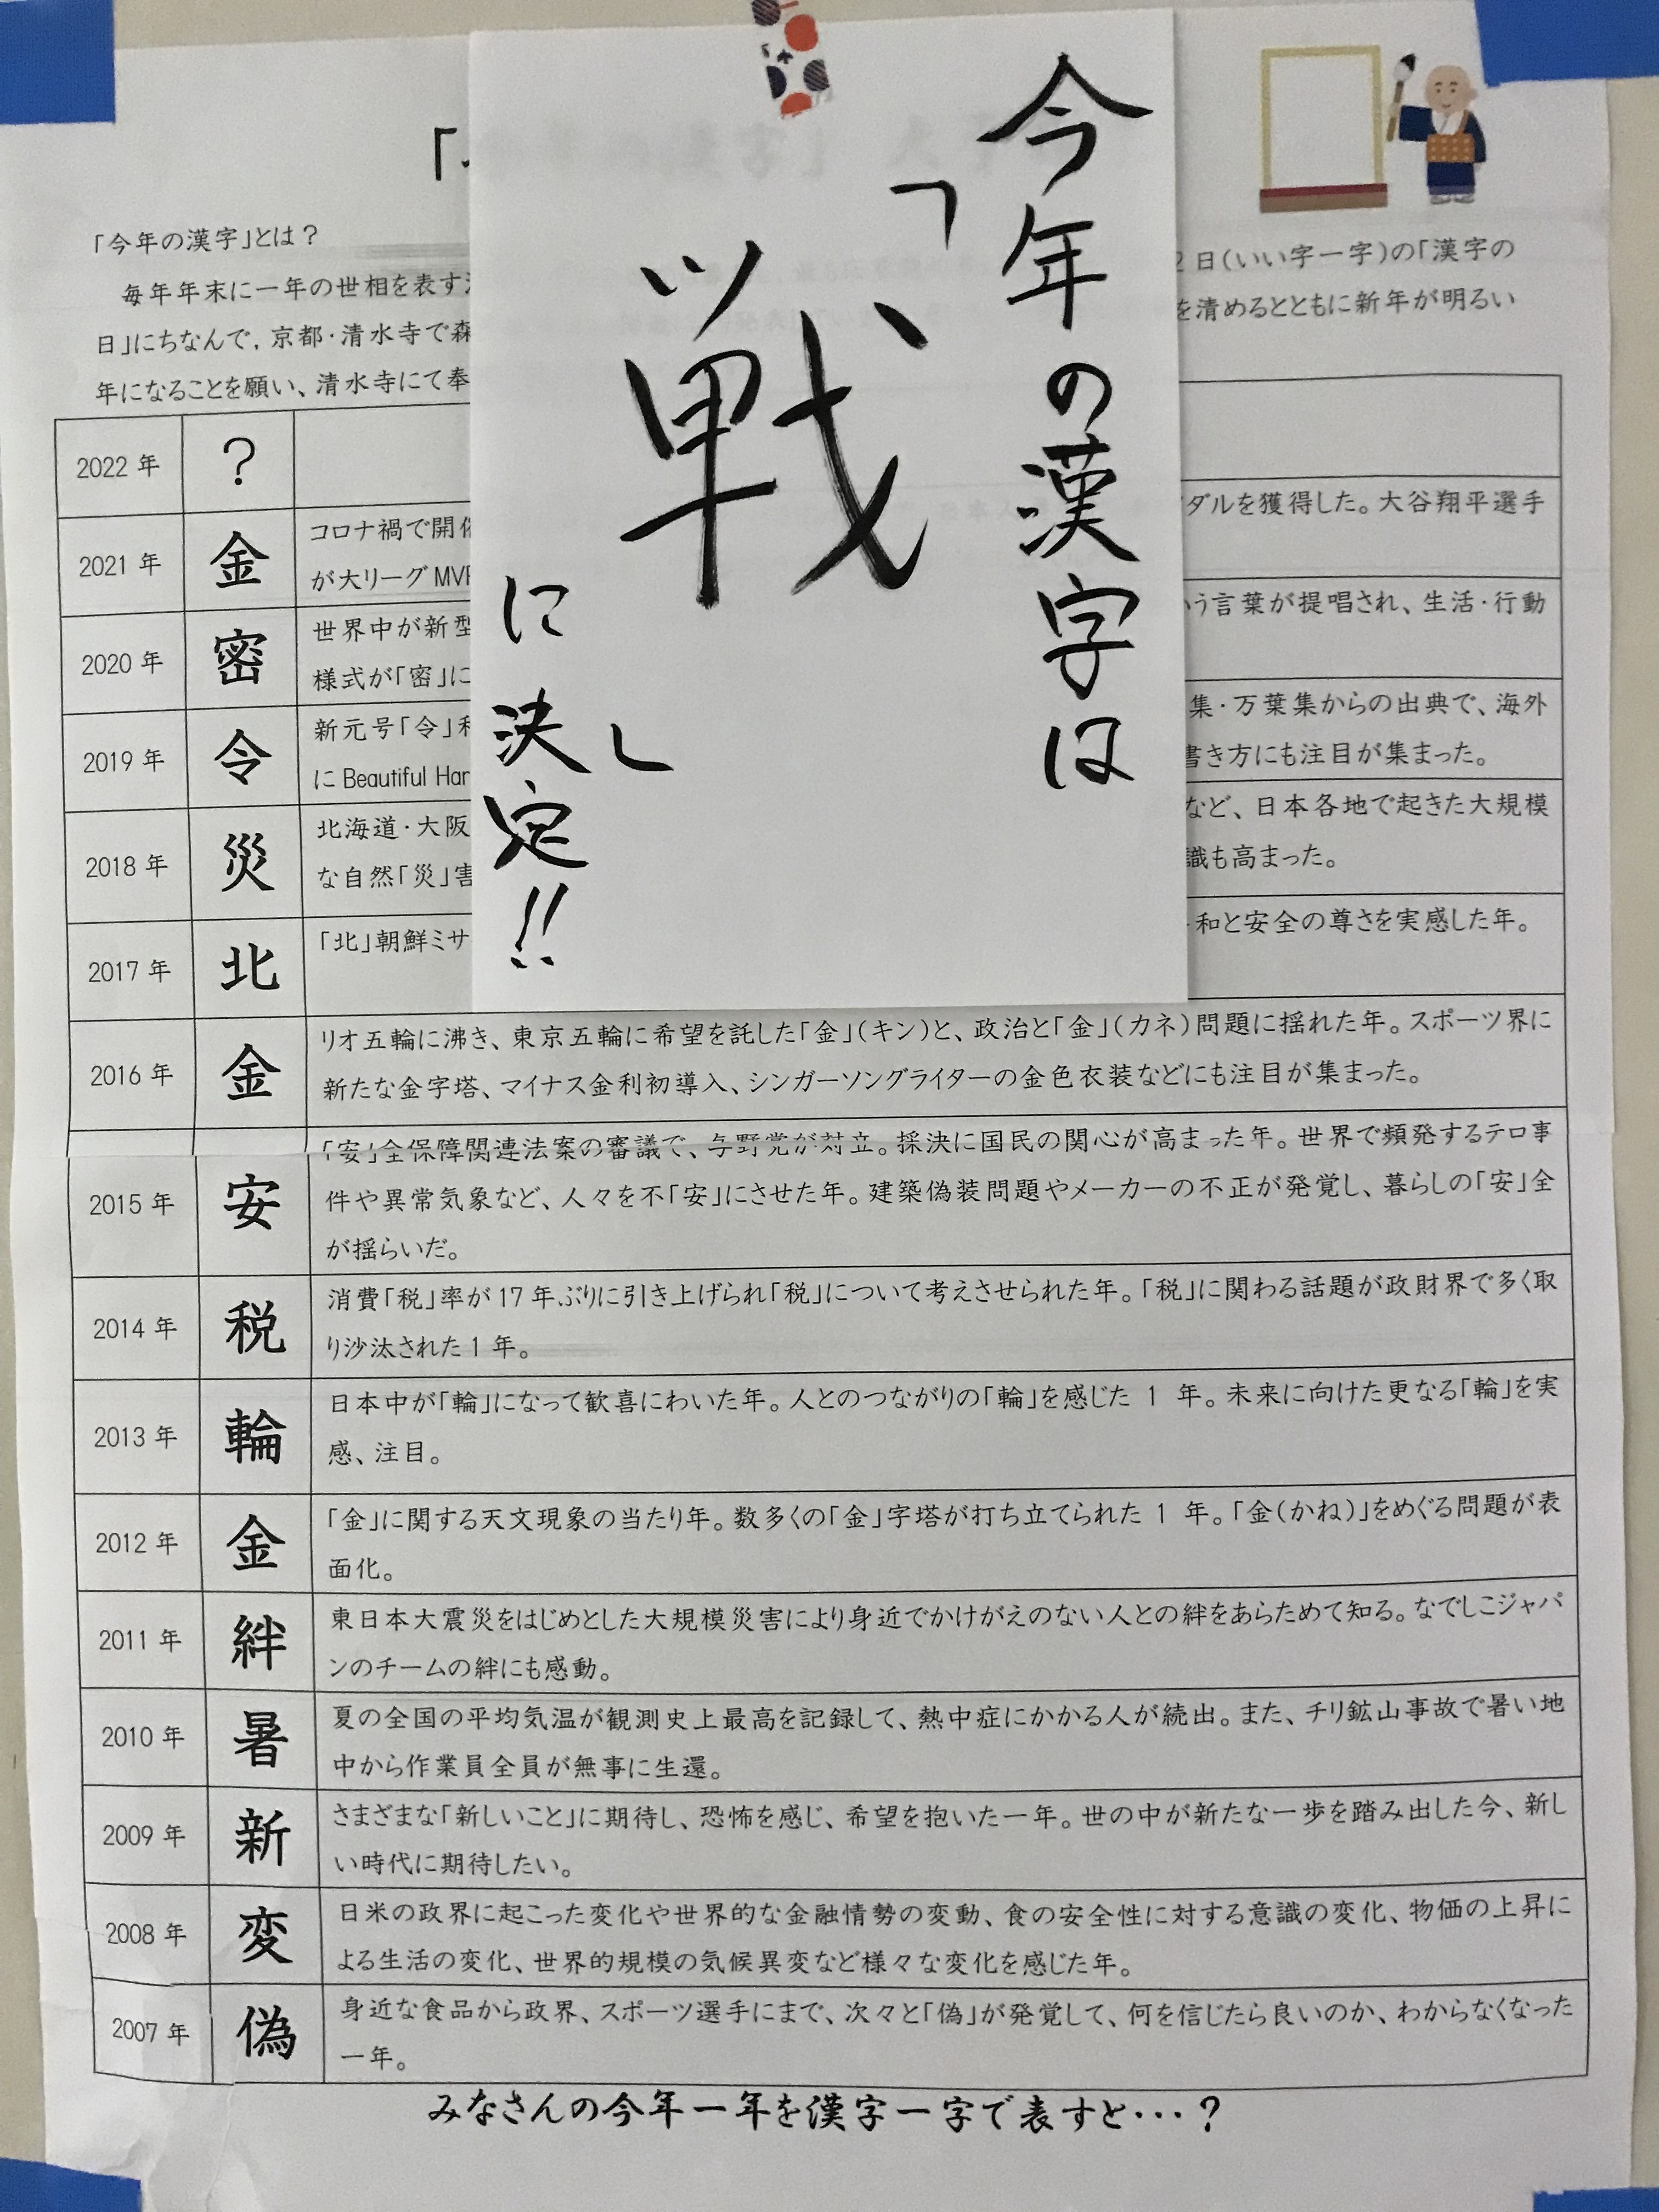 今年の漢字は
「戦」
に決定!!
「今年の漢字」とは？
毎年年末に一年の世相を表す
2日(いい字一字)の「漢字の
日」にちなんで，京都・清水寺で森
を清めるとともに新年が明るい
年になることを願い、清水寺にて奉
2022年 ？
2021年 金 コロナ禍で開催
ダルを獲得した。大谷翔平選手
が大リーグMVP
2020年 密 世界中が新型
いう言葉が提唱され、生活・行動
様式が「密」に
2019年 令 新元号「令」和
集・万葉集からの出典で、海外
にBeautiful Har
書き方にも注目が集まった。
2018年 災 北海道・大阪
など、日本各地で起きた大規模
な自然「災」害
識も高まった。
2017年 北 「北」朝鮮ミサ
和と安全の尊さを実感した年。
2016年 金 リオ五輪に沸き、東京五輪に希望を託した「金」(キン)と、政治と「金」(カネ)問題に揺れた年。スポーツ界に
新たな金字塔、マイナス金利初導入、シンガーソングライターの金色衣装などにも注目が集まった。
2015年 安 「安」全保障関連法案の審議で、与野党が対立。採決に国民の関心が高まった年。世界で頻発するテロ事
件や異常気象など、人々を不「安」にさせた年。建築偽装問題やメーカーの不正が発覚し、暮らしの「安」全
が揺らいだ。
2014年 税 消費「税」率が17年ぶりに引き上げられ「税」について考えさせられた年。「税」に関わる話題が政財界で多く取
り沙汰された1年。
2013年 輪 日本中が「輪」になって歓喜にわいた年。人とのつながりの「輪」を感じた 1 年。未来に向けた更なる「輪」を実
感、注目。
2012年 金 「金」に関する天文現象の当たり年。数多くの「金」字塔が打ち立てられた 1 年。「金(かね)」をめぐる問題が表
面化。
2011年 絆 東日本大震災をはじめとした大規模災害により身近でかけがえのない人との絆をあらためて知る。なでしこジャパ
ンのチームの絆にも感動。
2010年 暑 夏の全国の平均気温が観測史上最高を記録して、熱中症にかかる人が続出。また、チリ鉱山事故で暑い地
中から作業員全員が無事に生還。
2009年 新 さまざまな「新しいこと」に期待し、恐怖を感じ、希望を抱いた一年。世の中が新たな一歩を踏み出した今、新し
い時代に期待したい。
2008年 変 日米の政界に起こった変化や世界的な金融情勢の変動、食の安全性に対する意識の変化、物価の上昇に
よる生活の変化、世界的規模の気候異変など様々な変化を感じた年。
2007年 偽 身近な食品から政界、スポーツ選手にまで、次々と「偽」が発覚して、何を信じたら良いのか、わからなくなった
一年。
みなさんの今年一年を漢字一字で表すと・・・？